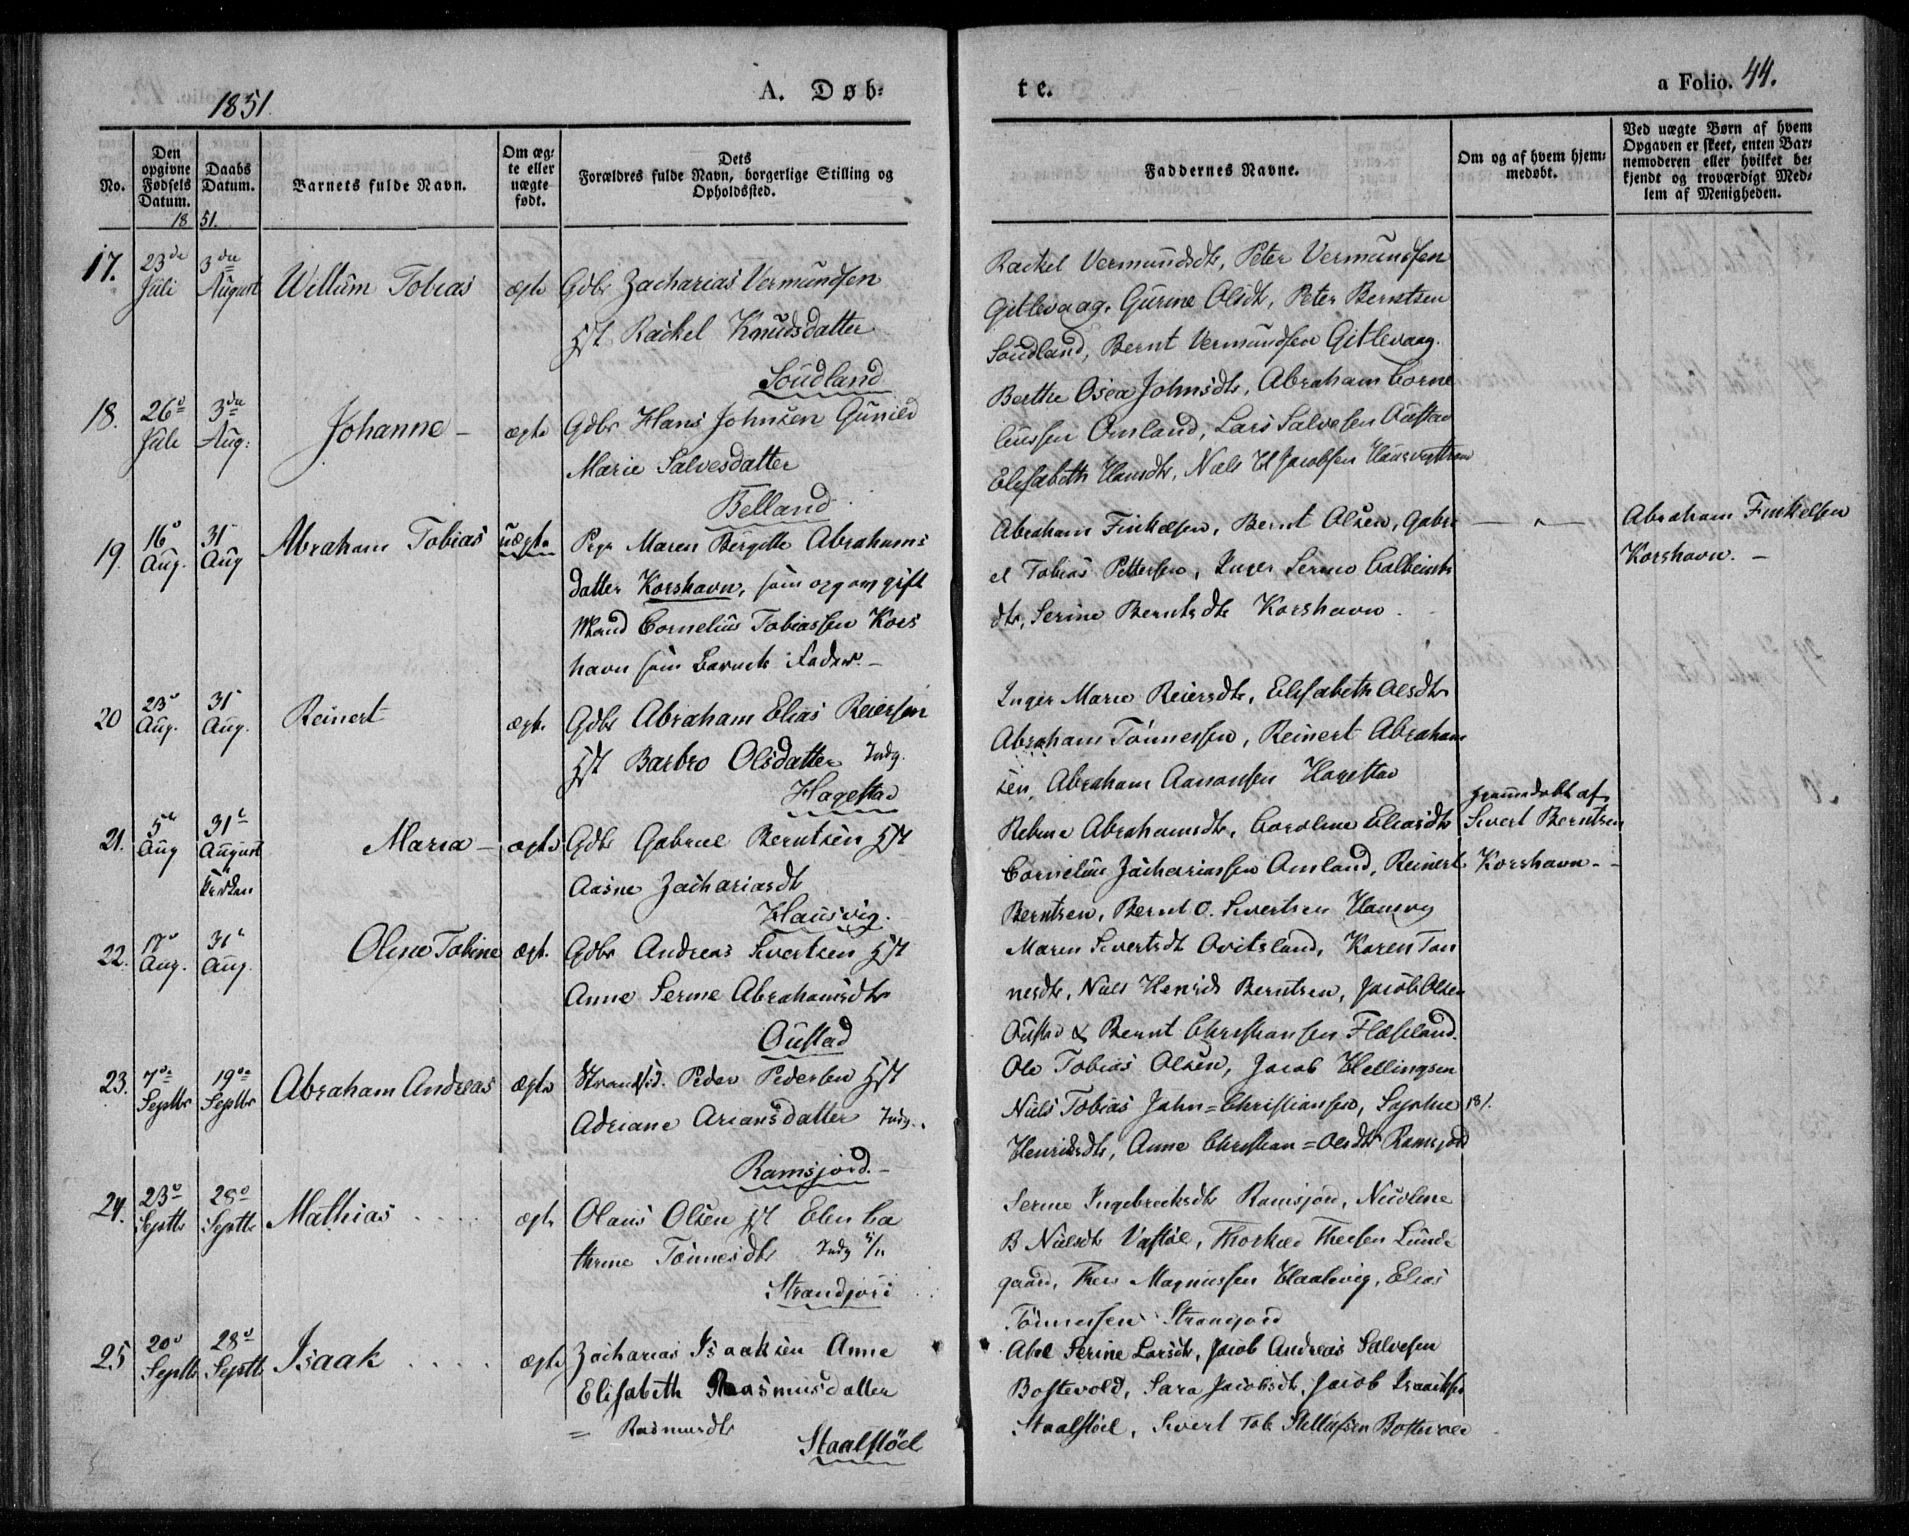 1851.
A. Døb-
te.
a Folio. 44.
No.
Den opgivne Fødsels Datum.
Daabs Datum.
Barnets fulde Navn.
Om æg- te eller uægte født.
Dets
Forældres fulde Navn, borgerlige Stilling og
Opholdssted.
Faddernes Navne.
Om og af hvem hjem-
medøbt.
Ved uægte Børn af hvem
Opgaven er skeet, enten Bar-
nemoderen eller hvilket be-
kjendt og troværdigt Med-
lem af Menigheden.
18 51.
17. 23de Juli 3die August Willum Tobias ægte
Gdbr Zacharias Vermundsen
Hst Rachel Knudsdatter
Soudland
Rachel Vermundsdtr, Peter Vermundsen
Gitlevaag, Gurine Olsdtr, Peter Berntsen
Soudland, Bernt Vermundsen Gitlevaag.
18. 26de Juli 3die Aug: Johanne ægte
Gdbr Hans Johnsen Gunild
Marie Salvesdatter
Belland
Berthe Osea Johnsdtr, Abraham Corne
liussen Omland, Lars Salvesen Austad
Elisabeth Hansdtr, Niels H Jacobsen
19. 16 Aug. 31 Aug Abraham Tobias uægte
Pige Maren Bergitte Abrahams
datter Korshavn, som opgav gift
Mand Cornelius Tobiassen Kors
havn som Barnets Fader. -
Abraham Finkelsen, Bernt Olsen, Gabri
el Tobias Pettersen, Inger Serine
dtr, Serine Berntsdtr Korshavn.
Abraham Finkelsen
Korshavn. -
20 23 Aug. 31 Aug. Reinert ægte
Gdbr Abraham Elias Reiersen
Hst Barbro Olsdatter Indg.
Hagestad
Inger Marie Reiersdtr, Elisabeth Olsdtr
Abraham Tönnessen, Reinert Abraham
sen, Abraham Aanonsen Hagestad
21. 5te Aug 31te August Kirken Maria ægte
Gdbr Gabriel Berntsen Hst
Aasne Zachariasdtr
Hausvig.
Rebine Abrahamsdtr, Caroline Eliasdtr
Cornelius Zachariassen Omland, Reinert
Berntsen, Bernt O. Sivertsen Hausvig
hjemmedøbt af
Sivert Berntsen
Korshavn -
22. 17 Aug. 31te Aug. Olene Tobine ægt.
Gdbr Andreas Sivertsen Hst
Anne Serine Abrahamsdtr
Oustad
Maren Sivertsdtr Ovitsland, Karen Tön
nesdtr, Niels Henrich Berntsen, Jacob Olsen
Oustad & Bernt Christiansen Flæseland.
23. 7de Septbr 19de Septbr Abraham Andreas ægte
Strandsid. Peder Pedersen Hst
Adriane Ariansdatter Indg.
Ramsjord. -
Ole Tobias Olsen, Jacob Hellingsen
Niels Tobias Jahn=Christiansen, Sophie
Henriksdtr, Anne Christian=Olsdtr Ramsjord
24. 23de Septbr 28de Septbr Mathias ægte
Olaus Olsen Hst Elen Ca
thrine Tönnesdtr Indg
Strandjord
Serine Ingebrechtsdtr Ramsjord, Nicoline
B Nielsdtr Vastöl, Thorkild Theisen Lunde
gaard, Theis Magnussen Haalevig, Elias
Tönnessen Strandjord
25 20de Septbr 28de Septbr Isaak ægte
Zacharias Isaaksen Anne
Elisabeth Rasmusdatter
= Rasmusdtr
Staalstöel
Abel Serine Larsdtr, Jacob Andreas Salvesen
Bostevold, Sara Jacobsdtr, Jacob Isaaksen
Staalstöel, Sivert Tob Bostevold